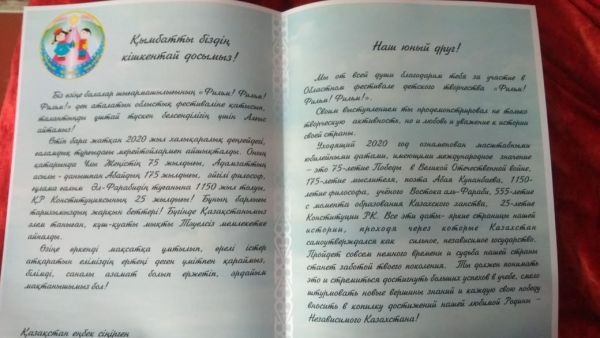 Қымбатты біздің
кішкентай досымыз!
Біз өзіңе балалар шығармашылығының «Фильм! Фильм!
Фильм!» деп аталатын облыстық фестиваліне қатысып,
талантыңды ұштай түскен белсенділігің үшін Алғыс
айтамыз!
Өтіп бара жатқан 2020 жыл халықаралық деңгейдегі,
ғаламдық тұрғыдағы мерейтойлармен айшықталды. Оның
қатарында Ұлы Жеңістің 75 жылдығы, Адамзаттың
асылы - данышпан Абайдың 175 жылдығы, әйгілі философ,
ғұлама ғалым Әл-Фарабидің туғанына 1150 жыл толуы,
ҚР Конституциясының 25 жылдығы! Бұның барлығы
тарихымыздың жарқын беттері! Бүгінде Қазақстанымыз
әлем таныған, күш-қуаты мықты Тәуелсіз мемлекетке
айналды.
Өзіңе өркенді мақсатқа ұмтылып, ерелі істер
атқаратын еліміздің ертеңі деген үмітпен қараймыз,
білімді, саналы азамат болып ержетіп, ордайым
мақтанышымыз бол!
Қазақстан еңбек сіңірген
Наш юный друг!
Мы от всей души благодарим тебя за участие в
Областном фестивале детского творчества «Фильм!
Фильм! Фильм!».
Своим выступлением ты продемонстрировал не только
творческую активность, но и любовь и уважение к истории
своей страны.
Уходящий 2020 год ознаменован масштабными
юбилейными датами, имеющими международное значение
– это 75-летие Победы в Великой Отечественной войне,
175-летие мыслителя, поэта Абая Кунанбаева, 1150-летие
философа, учёного Востока аль-Фараби, 555-летие
с момента образования Казахского ханства, 25-летие
Конституции РК. Все эти даты- яркие страницы нашей
истории, проходя через которые Казахстан
самоутверждался как сильное, независимое государство.
Пройдет совсем немного времени и судьба нашей страны
станет заботой твоего поколения. Ты должен понимать
это и стремиться достигнуть больших успехов в учебе, смело
штурмовать новые вершины знаний и каждую свою победу
вносить в копилку достижений нашей любимой Родины –
Независимого Казахстана!